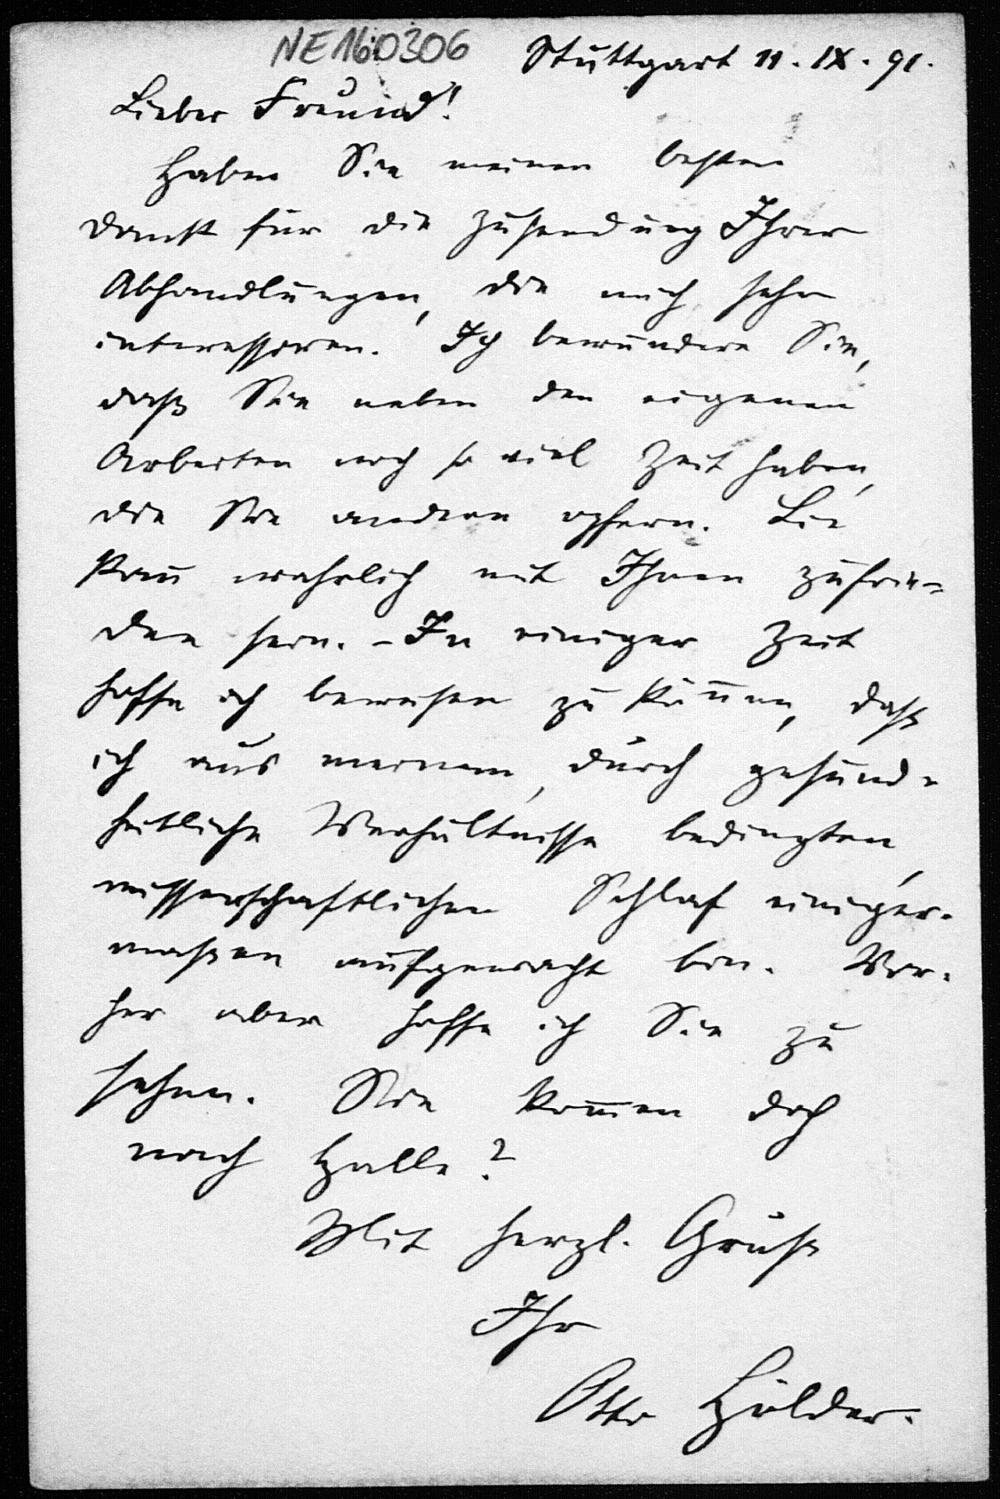 NE160306
Stuttgart 11. IX. 91.
Lieber Freund!
Haben Sie meinen besten
Dank für die Zusendung Ihrer
Abhandlungen, die mich sehr
interessiren. Ich bewundere Sie,
daß Sie neben den eigenen
Arbeiten noch so viel Zeit haben,
die Sie andern opfern. Lie
kann wahrlich mit Ihnen zufrie-
den sein. – In einiger Zeit
hoffe ich beweisen zu können, daß
ich aus meinem, durch gesund-
heitliche Verhältnisse bedingten,
wissenschaftlichen Schlaf einiger-
maßen aufgewacht bin. Vor-
her aber hoffe ich Sie zu
sehen. Sie kommen doch
nach Halle?
Mit herzl. Gruß
Ihr
Otto Hölder.